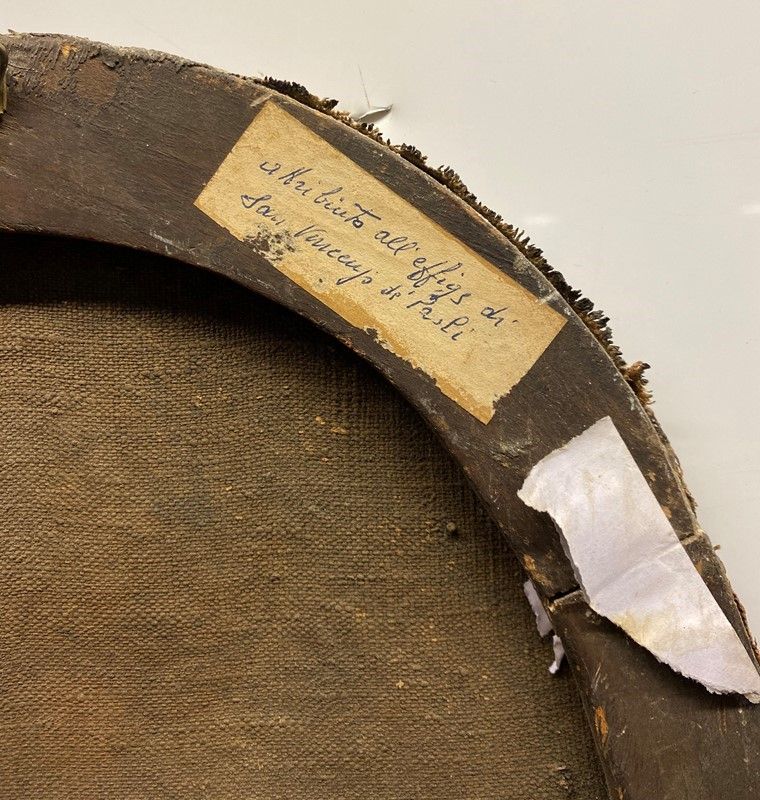 attribuito all'effigs di
San Vincenzo di Paoli